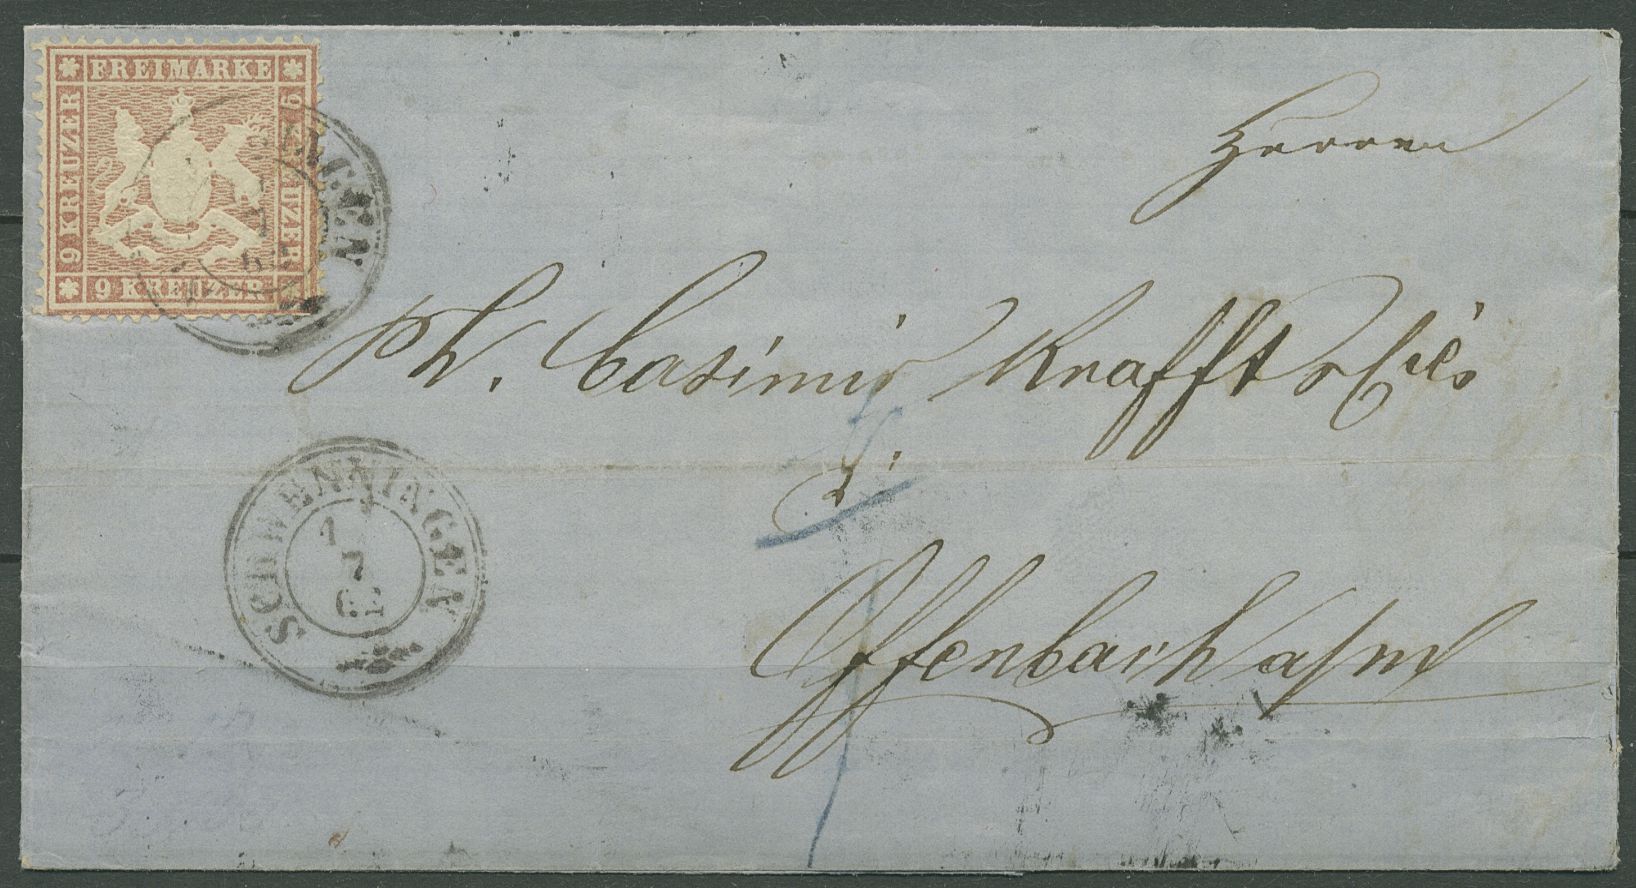 FREIMARKE
9 KREUZER
9 KREUZER
9 KREUZER
INGEN
7
62
Herren
Ph. Casimir Krafft & Cie
Offenbach a/m
SCHWENNINGEN
1
7
62